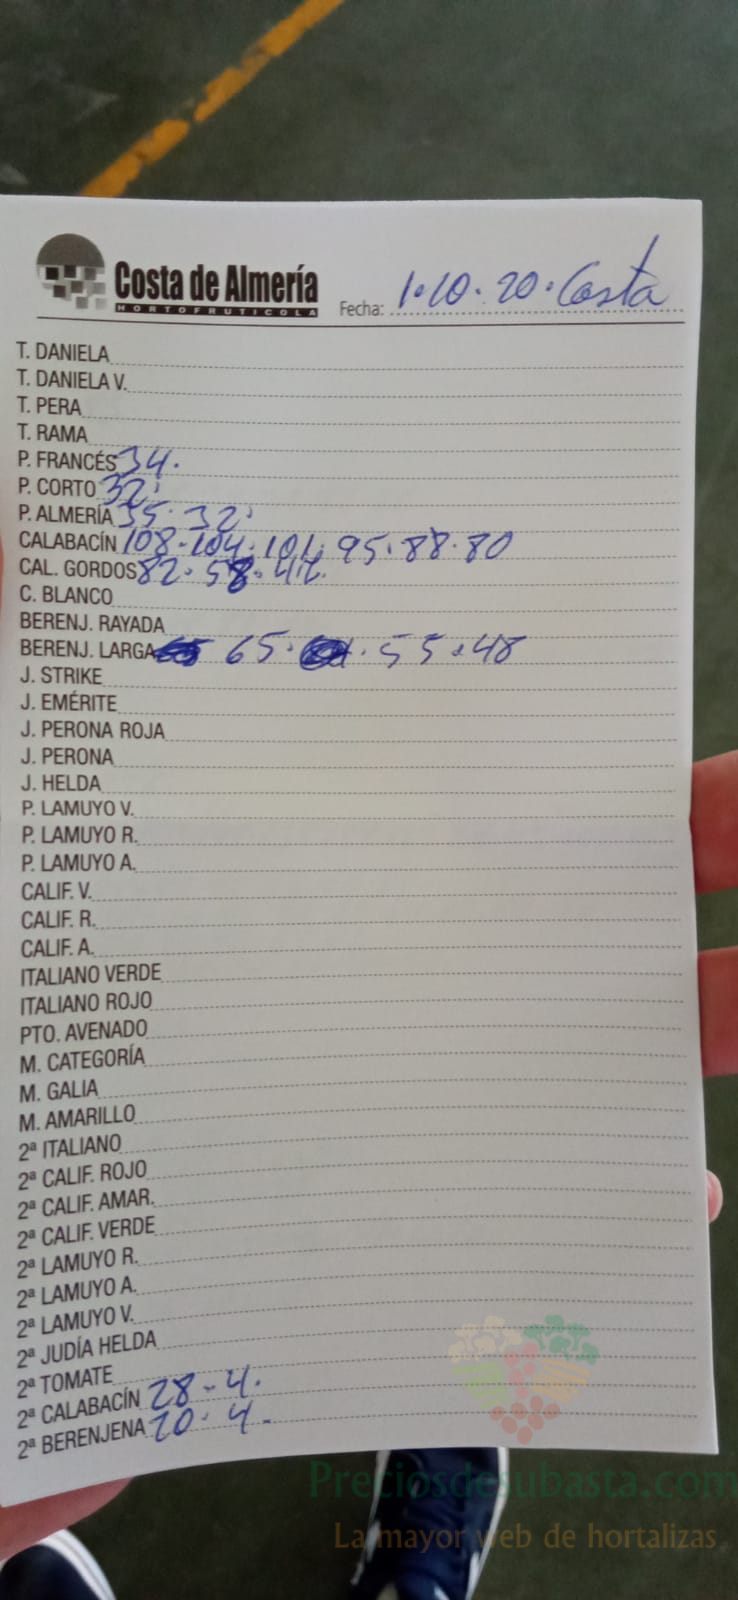 Costa de Almería
HORTOFRUTICOLA
Fecha: 1.10.20. Costa
T. DANIELA
T. DANIELA V.
T. PERA
T. RAMA
P. FRANCÉS 34.
P. CORTO 32
P. ALMERÍA 35. 32
CALABACÍN 108-104.101.95.88.80
CAL. GORDOS 82. 58.
C. BLANCO
BERENJ. RAYADA
BERENJ. LARGA 65. 55.48
J. STRIKE
J. EMÉRITE
J. PERONA ROJA
J. PERONA
J. HELDA
P. LAMUYO V.
P. LAMUYO R.
P. LAMUYO A.
CALIF. V.
CALIF. R.
CALIF. A.
ITALIANO VERDE
ITALIANO ROJO
PTO. AVENADO
M. CATEGORÍA
M. GALIA
M. AMARILLO
2ª ITALIANO
2ª CALIF. ROJO
2ª CALIF. AMAR.
2ª CALIF. VERDE
2ª LAMUYO R.
2ª LAMUYO A.
2ª LAMUYO V.
2ª JUDÍA HELDA
2ª TOMATE
2ª CALABACÍN 28-4.
2ª BERENJENA 20. 4.
Preciosdesubasta.com
La mayor web de hortalizas